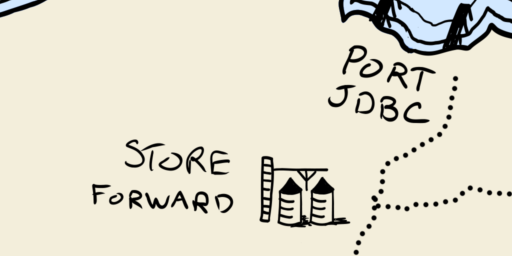 PORT
JDBC
STORE
FORWARD